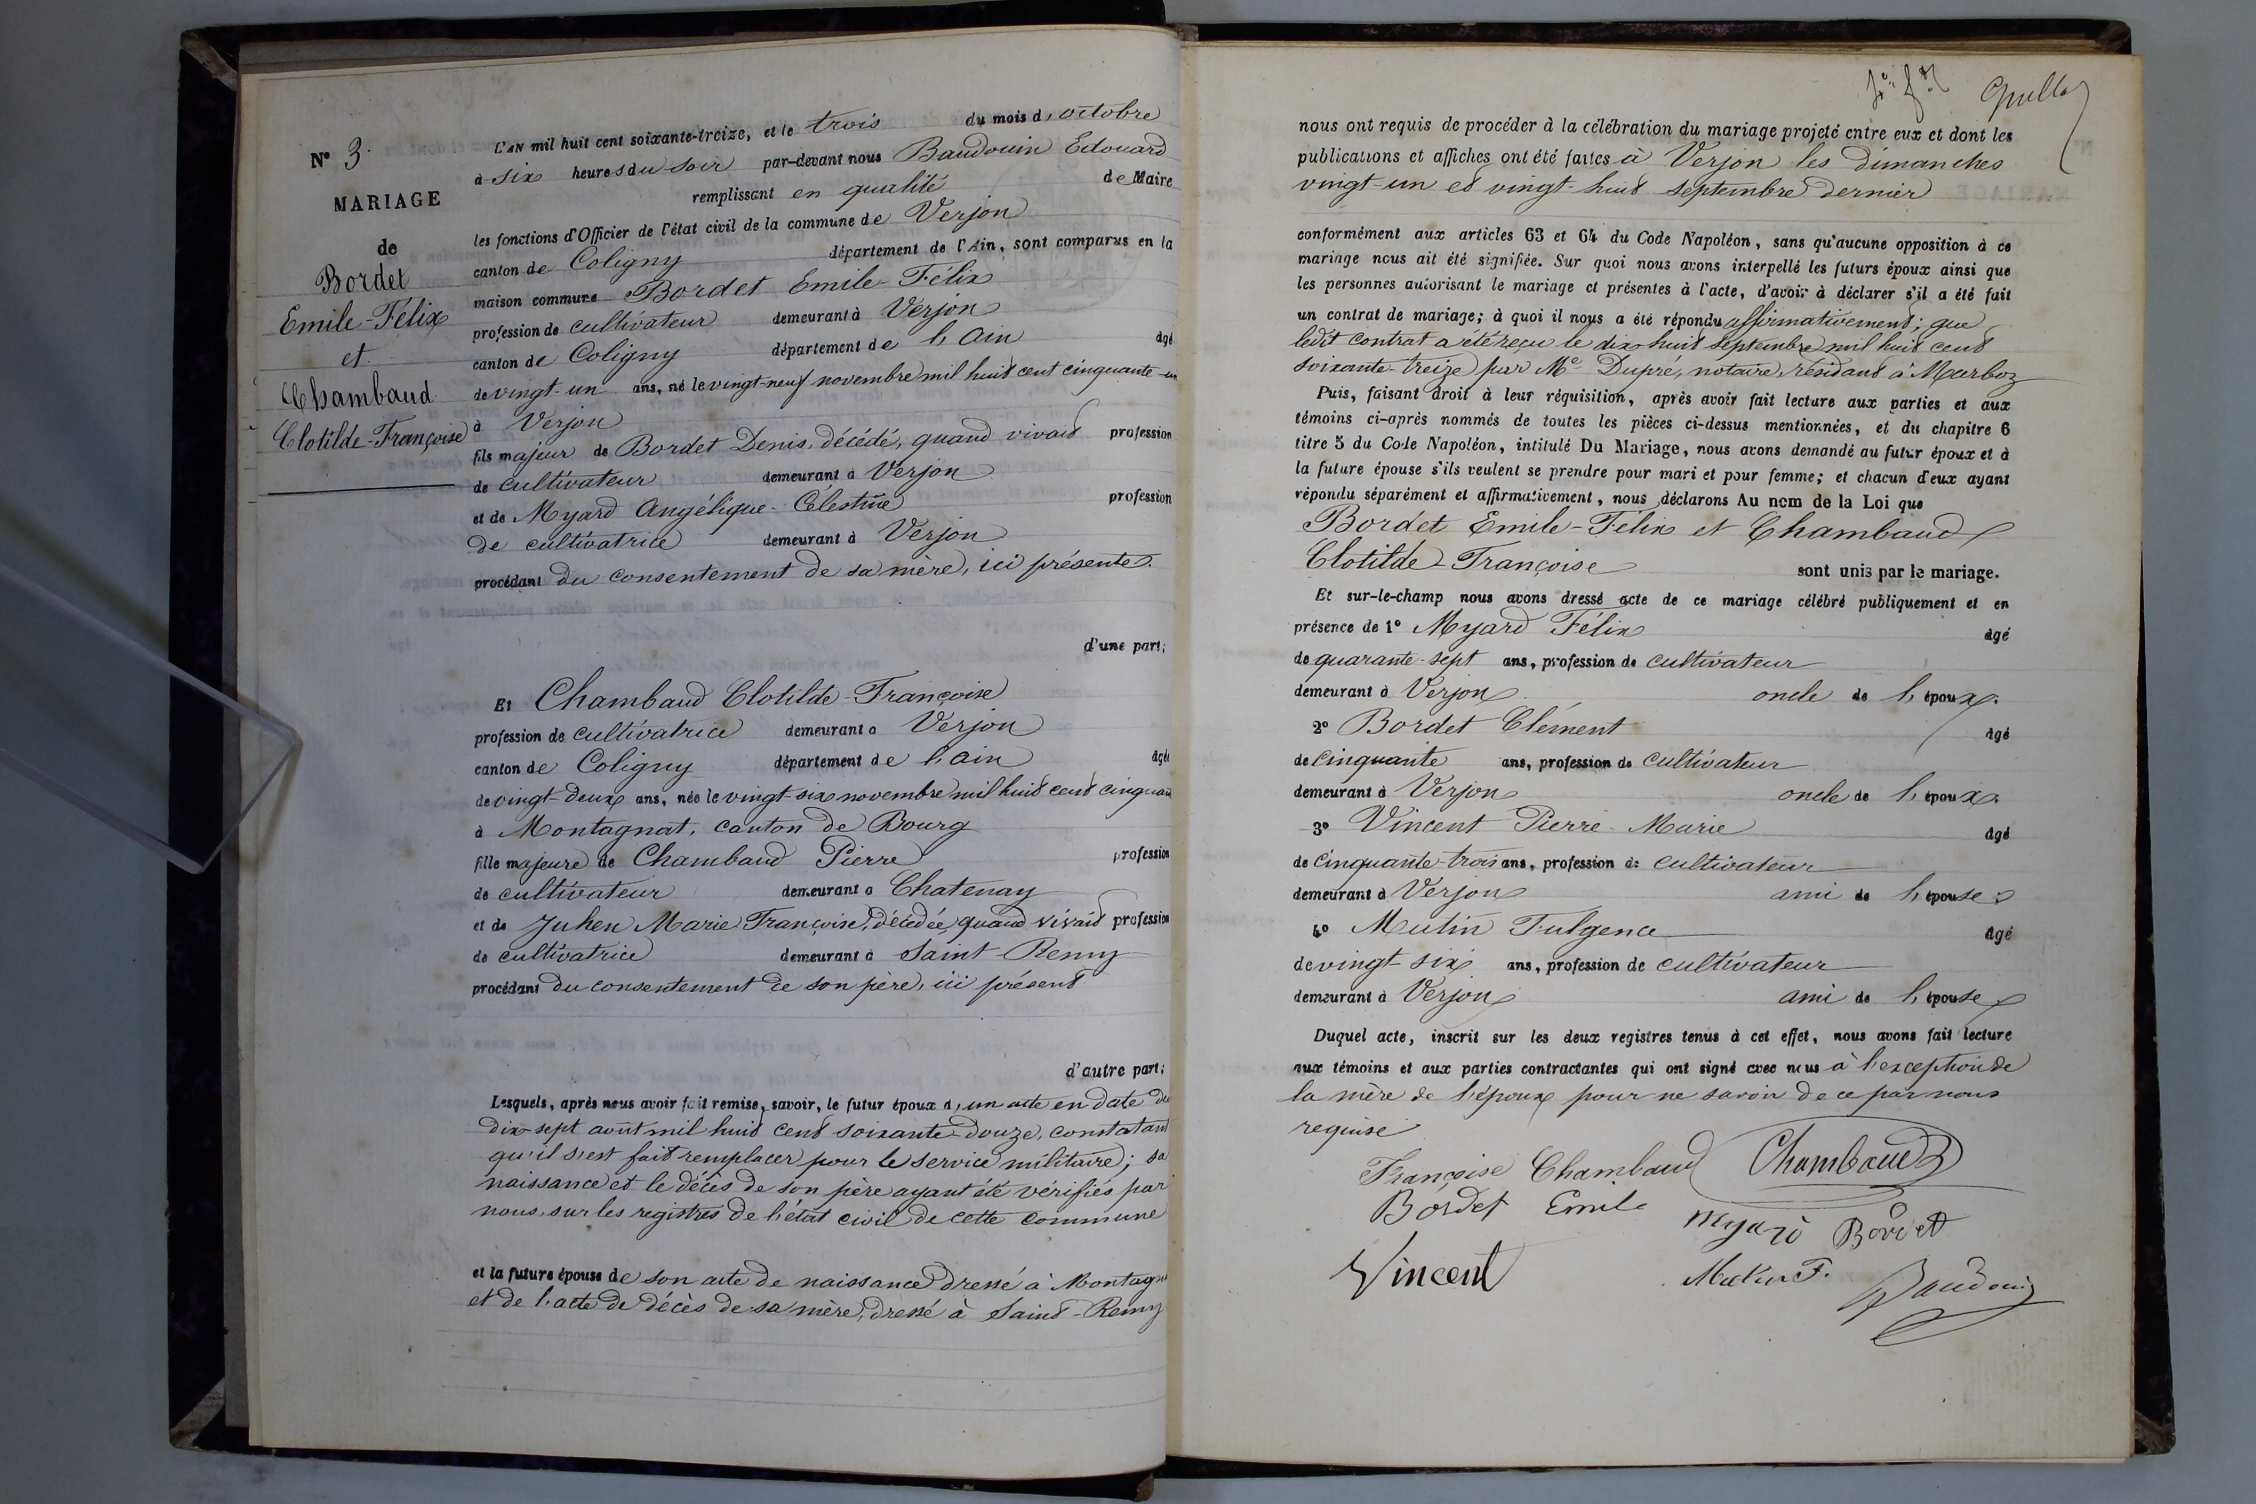 N° 3.
MARIAGE
de
Bordet
Emile-Félix
et
Chambaud
Clotilde-Françoise
L'AN mil huit cent soixante-treize, et le trois du mois d'octobre
à six heures du soir par-devant nous Baudouin Edouard
remplissant en qualité de Maire
les fonctions d'Officier de l'état civil de la commune de Verjon
canton de Coligny département de l'Ain, sont comparus en la
maison commune Bordet Emile-Félix
profession de cultivateur demeurant à Verjon
canton de Coligny département de l'Ain âgé
de vingt-un ans, né le vingt-neuf novembre mil huit cent cinquante-un
à Verjon
fils majeur de Bordet Denis, décédé, quand vivait profession
de cultivateur demeurant à Verjon
et de Myard Angélique-Célestine profession
de cultivatrice demeurant à Verjon
procédant du consentement de sa mère, ici présente.
d'une part;
Et Chambaud Clotilde-Françoise
profession de cultivatrice demeurant à Verjon
canton de Coligny département de l'Ain âgée
de vingt-deux ans, née le vingt-six novembre mil huit cent cinquan
à Montagnat, canton de Bourg
fille majeure de Chambaud Pierre profession
de cultivateur demeurant à Chatenay
et de Juhen Marie Françoise, décédée, quand vivait profession
de cultivatrice demeurant à Saint-Remy
procédant du consentement de son père, ici présent
d'autre part;
Lesquels, après nous avoir fait remise, savoir, le futur époux d'un acte en date du
dix-sept août mil huit cent soixante-douze, constatant
qu'il s'est fait remplacer pour le service militaire; sa
naissance et le décès de son père ayant été vérifiés par
nous, sur les registres de l'état civil de cette commune
et la future épouse de son acte de naissance dressé à Montagn
et de l'acte de décès de sa mère, dressé à Saint-Remy
nous ont requis de procéder à la célébration du mariage projeté entre eux et dont les
publications et affiches ont été faites à Verjon les dimanches
vingt-un et vingt-huit septembre dernier
conformément aux articles 63 et 64 du Code Napoléon, sans qu'aucune opposition à ce
mariage nous ait été signifiée. Sur quoi nous avons interpellé les futurs époux ainsi que
les personnes autorisant le mariage et présentes à l'acte, d'avoir à déclarer s'il a été fait
un contrat de mariage; à quoi il nous a été répondu affirmativement; que
ledit contrat a été reçu le dix-huit septembre mil huit cent
soixante-treize par Me Dupré, notaire, résidant à Marboz
Puis, faisant droit à leur réquisition, après avoir fait lecture aux parties et aux
témoins ci-après nommés de toutes les pièces ci-dessus mentionnées, et du chapitre 6
titre 5 du Code Napoléon, intitulé Du Mariage, nous avons demandé au futur époux et à
la future épouse s'ils veulent se prendre pour mari et pour femme; et chacun d'eux ayant
répondu séparément et affirmativement, nous déclarons Au nom de la Loi que
Bordet Emile-Félix et Chambaud
Clotilde-Françoise sont unis par le mariage.
Et sur-le-champ nous avons dressé acte de ce mariage célébré publiquement et en
présence de 1° Myard Félix âgé
de quarante-sept ans, profession de cultivateur
demeurant à Verjon oncle de l'époux.
2° Bordet Clément âgé
de cinquante ans, profession de cultivateur
demeurant à Verjon oncle de l'époux.
3° Vincent Pierre-Marie âgé
de cinquante-trois ans, profession de cultivateur
demeurant à Verjon ami de l'épouse;
4° Mutin Fulgence âgé
de vingt-six ans, profession de cultivateur
demeurant à Verjon ami de l'épouse
Duquel acte, inscrit sur les deux registres tenus à cet effet, nous avons fait lecture
aux témoins et aux parties contractantes qui ont signé avec nous à l'exception de
la mère de l'époux pour ne savoir de ce par nous
requise
Françoise Chambaud Chambaud
Bordet Emile Myard Bordet
Vincent Mutin F. Baudouin